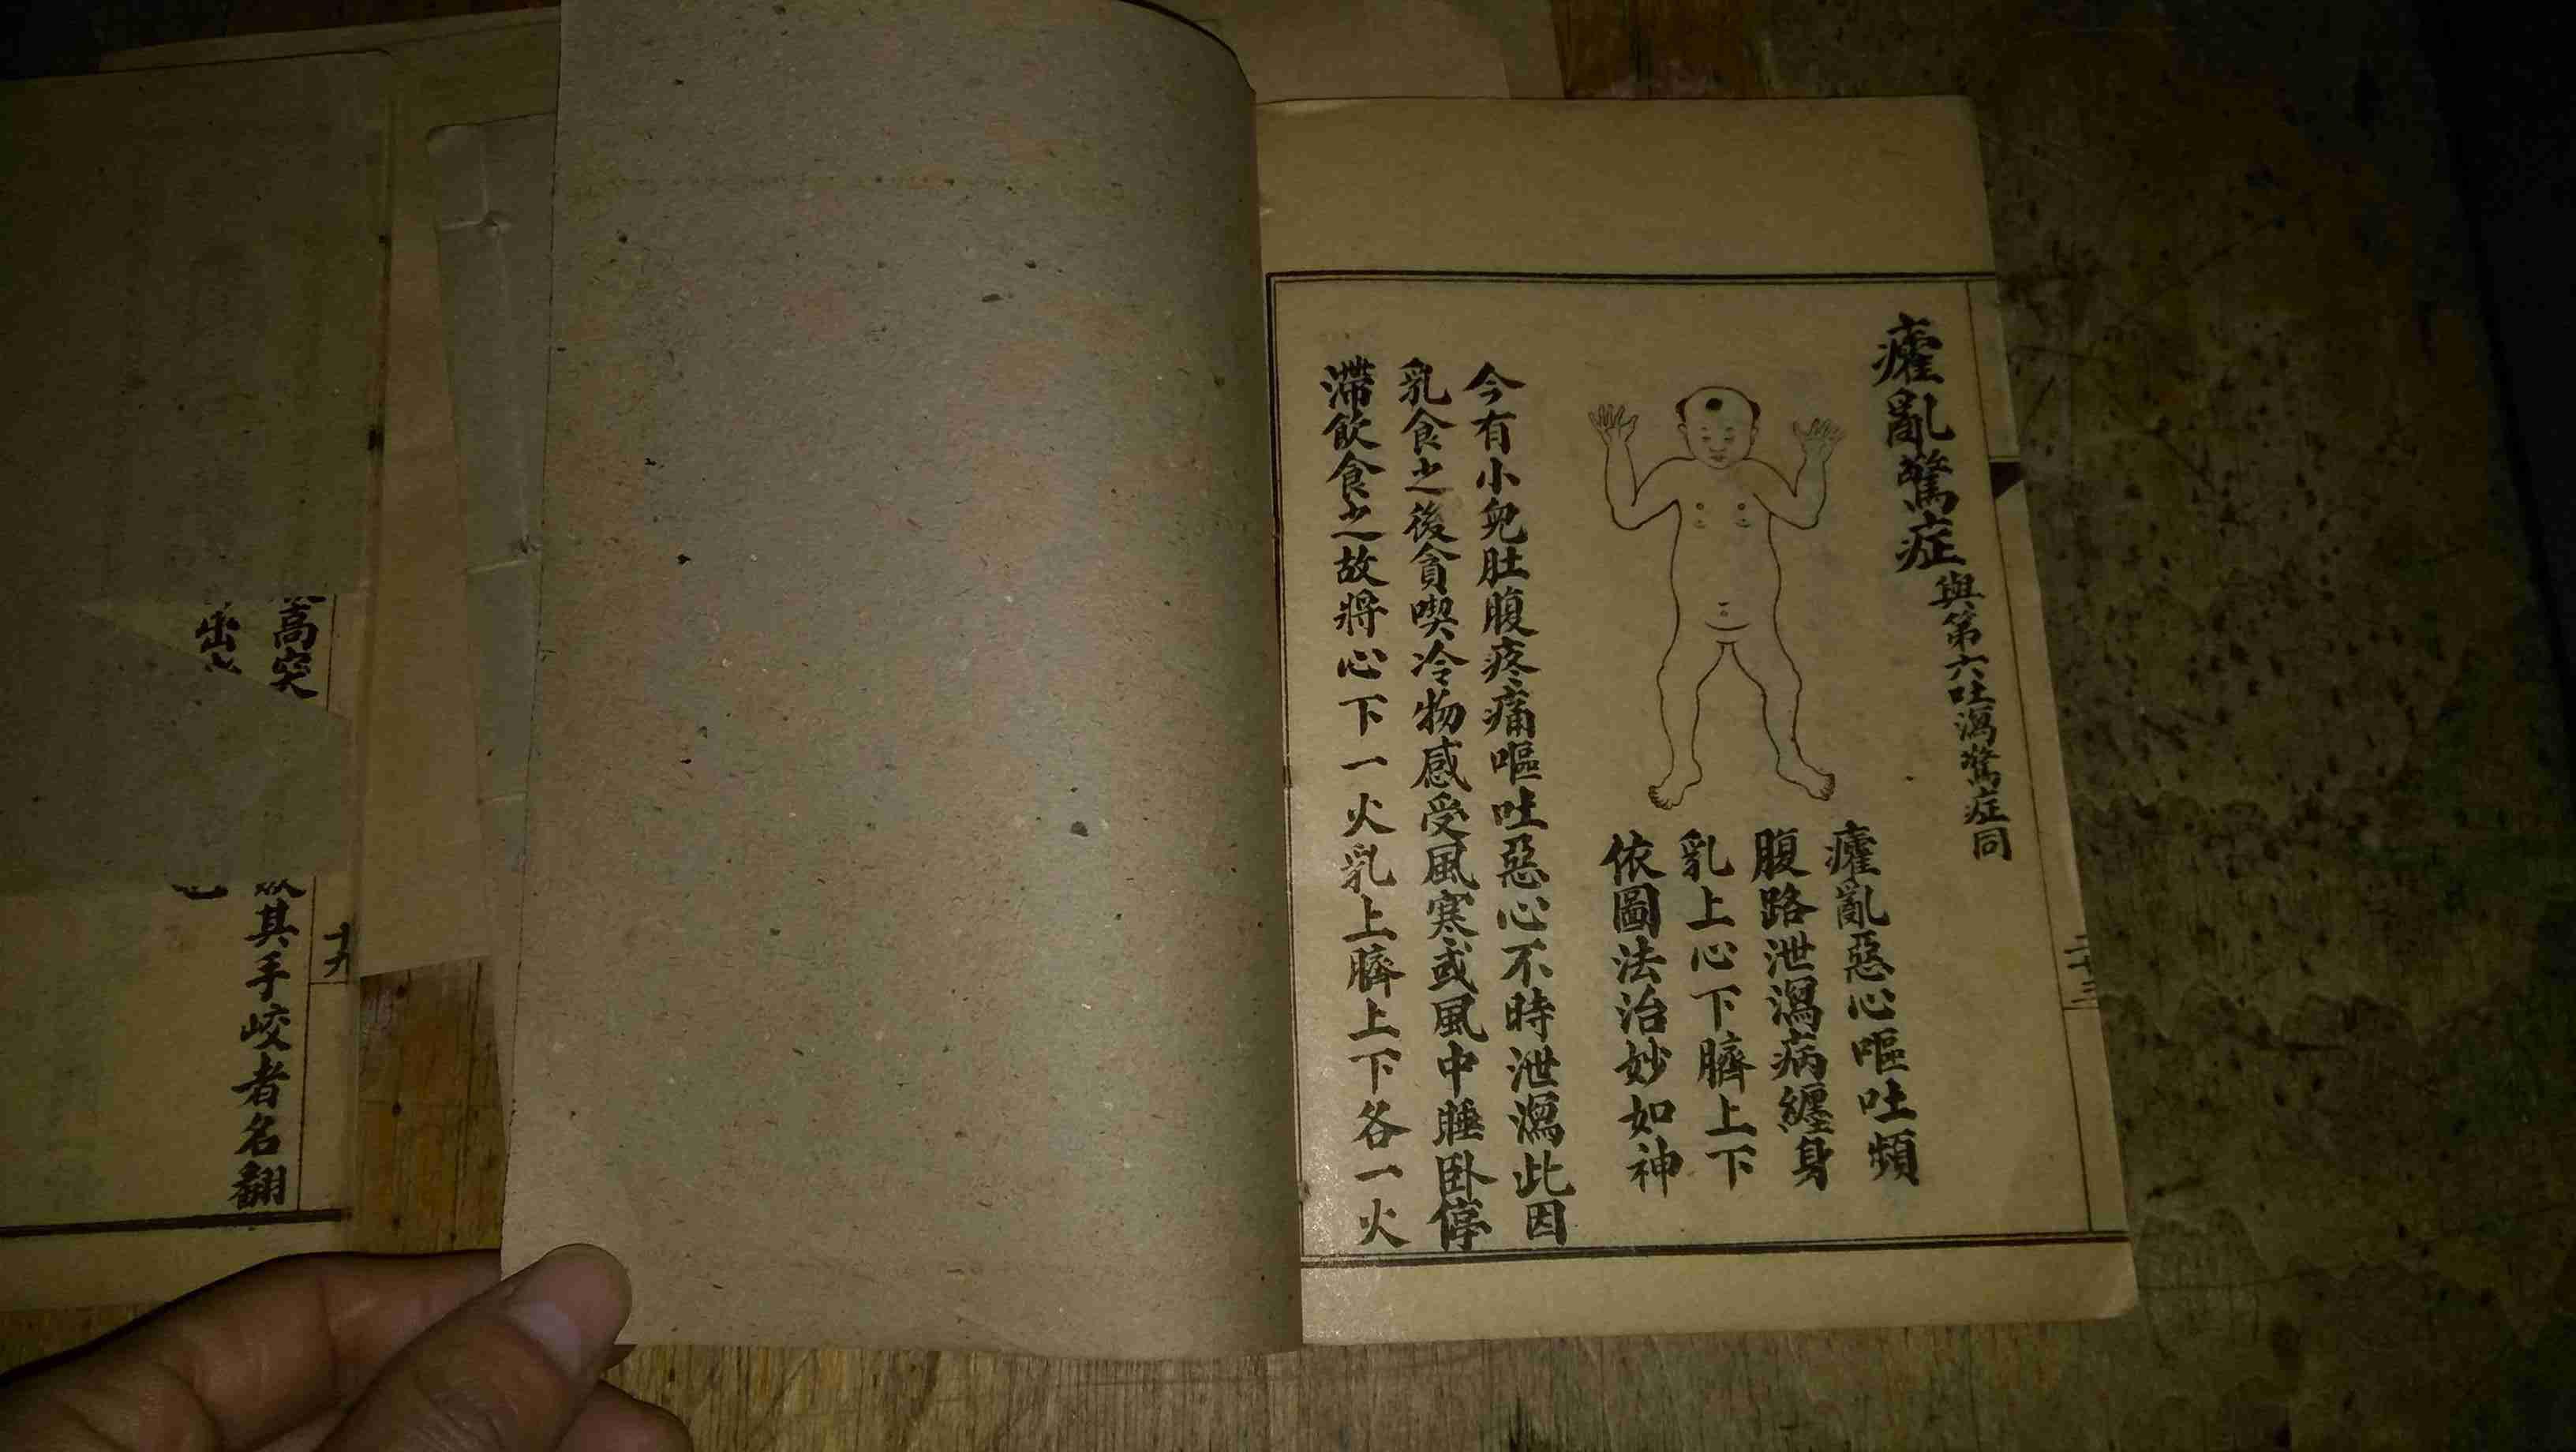 癨亂驚症
與第六吐瀉驚症同
癨亂惡心嘔吐頻
腹路泄瀉病纏身
乳上心下臍上下
依圖法治妙如神
今有小兒肚腹疼痛嘔吐惡心不時泄瀉此因
乳食之後貪喫冷物感受風寒或風中睡卧停
滯飲食之故將心下一火乳上臍上下各一火
二十三
十九
高突
其手咬者名翻
出